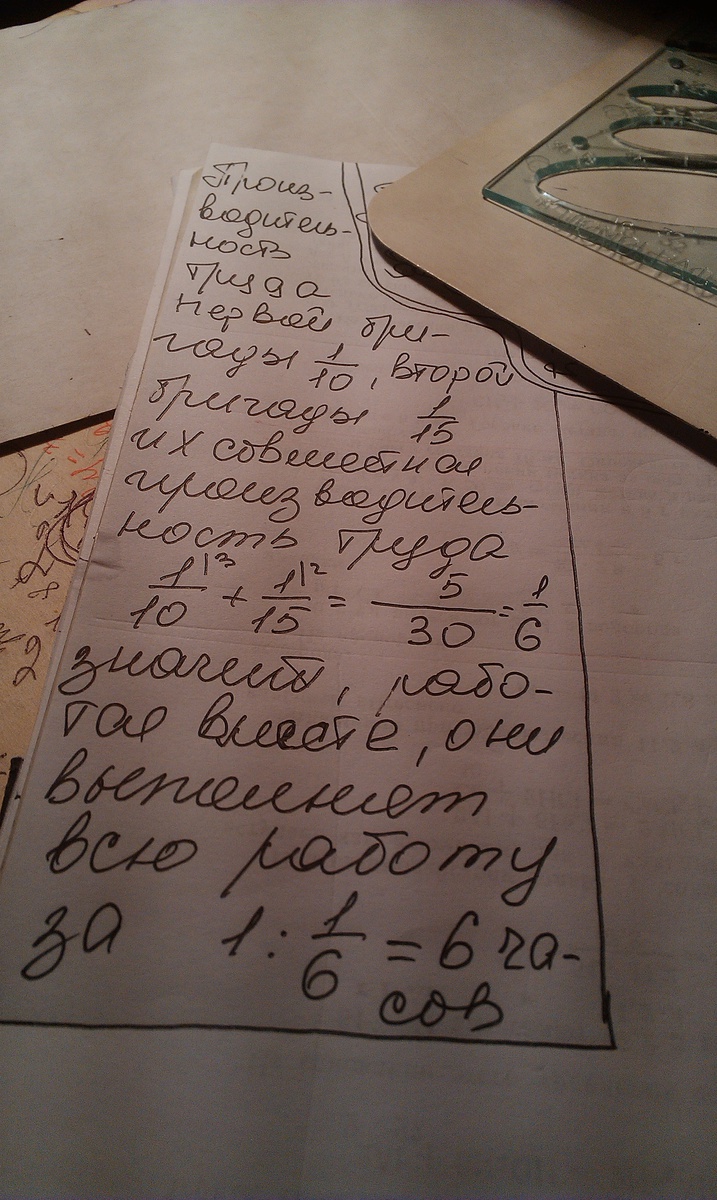 Произ-
водитель-
ность
труда
первой бри-
гады 1/10, второй
бригады 1/15
их совместная
производитель-
ность труда
1/10 |3 + 1/15 |2 = 5/30 = 1/6
значит, рабо-
тая вместе, они
выполнят
всю работу
за 1 : 1/6 = 6 ча-
сов